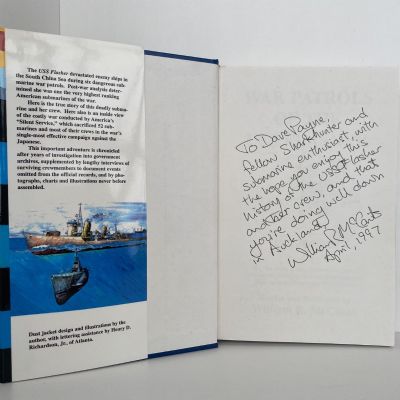 The USS Flasher devastated enemy ships in
the South China Sea during six dangerous sub-
marine war patrols. Post-war analysis deter-
mined she was one the very highest ranking
American submarines of the war.
Here is the true story of this deadly subma-
rine and her crew. Here also is an inside view
of the costly war conducted by America's
"Silent Service," which sacrificed 52 sub-
marines and most of their crews in the war's
single-most effective campaign against the
Japanese.
This important adventure is chronicled
after years of investigation into government
archives, supplemented by lengthy interviews of
surviving crewmembers to document events
omitted from the official records, and by pho-
tographs, charts and illustrations never before
assembled.
Dust jacket design and illustrations by the
author, with lettering assistance by Henry D.
Richardson, Jr., of Atlanta.
WAR PATROLS
To Dave Payne,
fellow Sharkhunter and
submarine enthusiast, with
the hope you enjoy this
history of the USS Flasher
and her crew, and that
you're doing well down
in Auckland!
William R. McCants
April, 1997